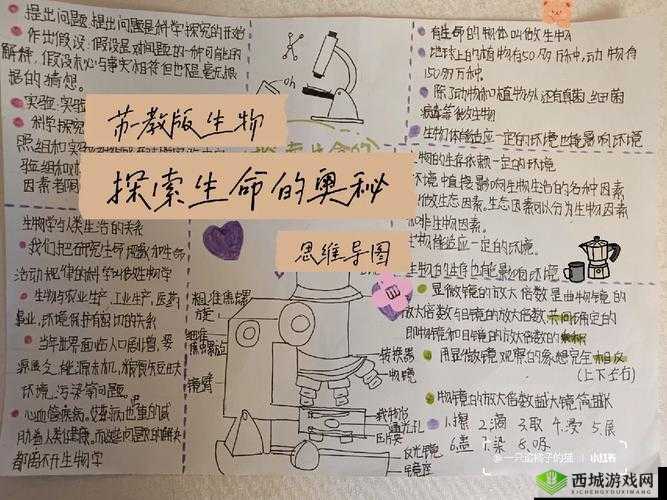 提出问题:提出问题是科学探究的开始
作出假设:假设是对问题的一种可能的
解释,假设未必与事实相符但也是毫无根
据的猜想。
实验:实验
科学探究
照组和实
验组和
因素
苏教版生物
探索生命的奥秘
思维导图
生物学与人类生活的关系
我们把研究生命现象和生命
活动规律的科学叫做生物学
生物与农业生产、工业生产、医药
事业,环境保护有密切的关系
当今世界面临人口剧增、资
源匮乏、能源危机、粮食不足
环境污染等问题。
心血管疾病、艾滋病也重的威
胁着人类健康,而这些问题的解决
都离不开生物学
粗准焦螺
旋
细准
焦螺旋
镜臂
转换器
物镜
载物台
通光孔
压片夹
反光镜
镜座
有生命的物体叫做生物
地球上的植物有50多万种,动物有
150多万种。
除了动物和植物外还有真菌、细菌
病毒等微生物
生物体能适应一定的环境也能影响环境
生物的生存依赖一定的环境
环境中直接影响生物生活的各种因素
叫做生态因素。生态因素可以分为生物因素
和非生物因素。
生物能适应一定的环境。
生物的生存也能影响环境
显微镜的放大倍数是由物镜的
放大倍数与目镜的放大倍数共同确定的
即物镜和目镜的放大倍数的乘积
用显微镜观察的象想完全相反
(上下左右)
物镜的放大倍数越大镜筒越长
1.擦 2.滴 3.取 4.浸 5.展
6.盖 7.染 8.吸
小红书
西城游戏网
XICHENGYOUXIWANG.COM